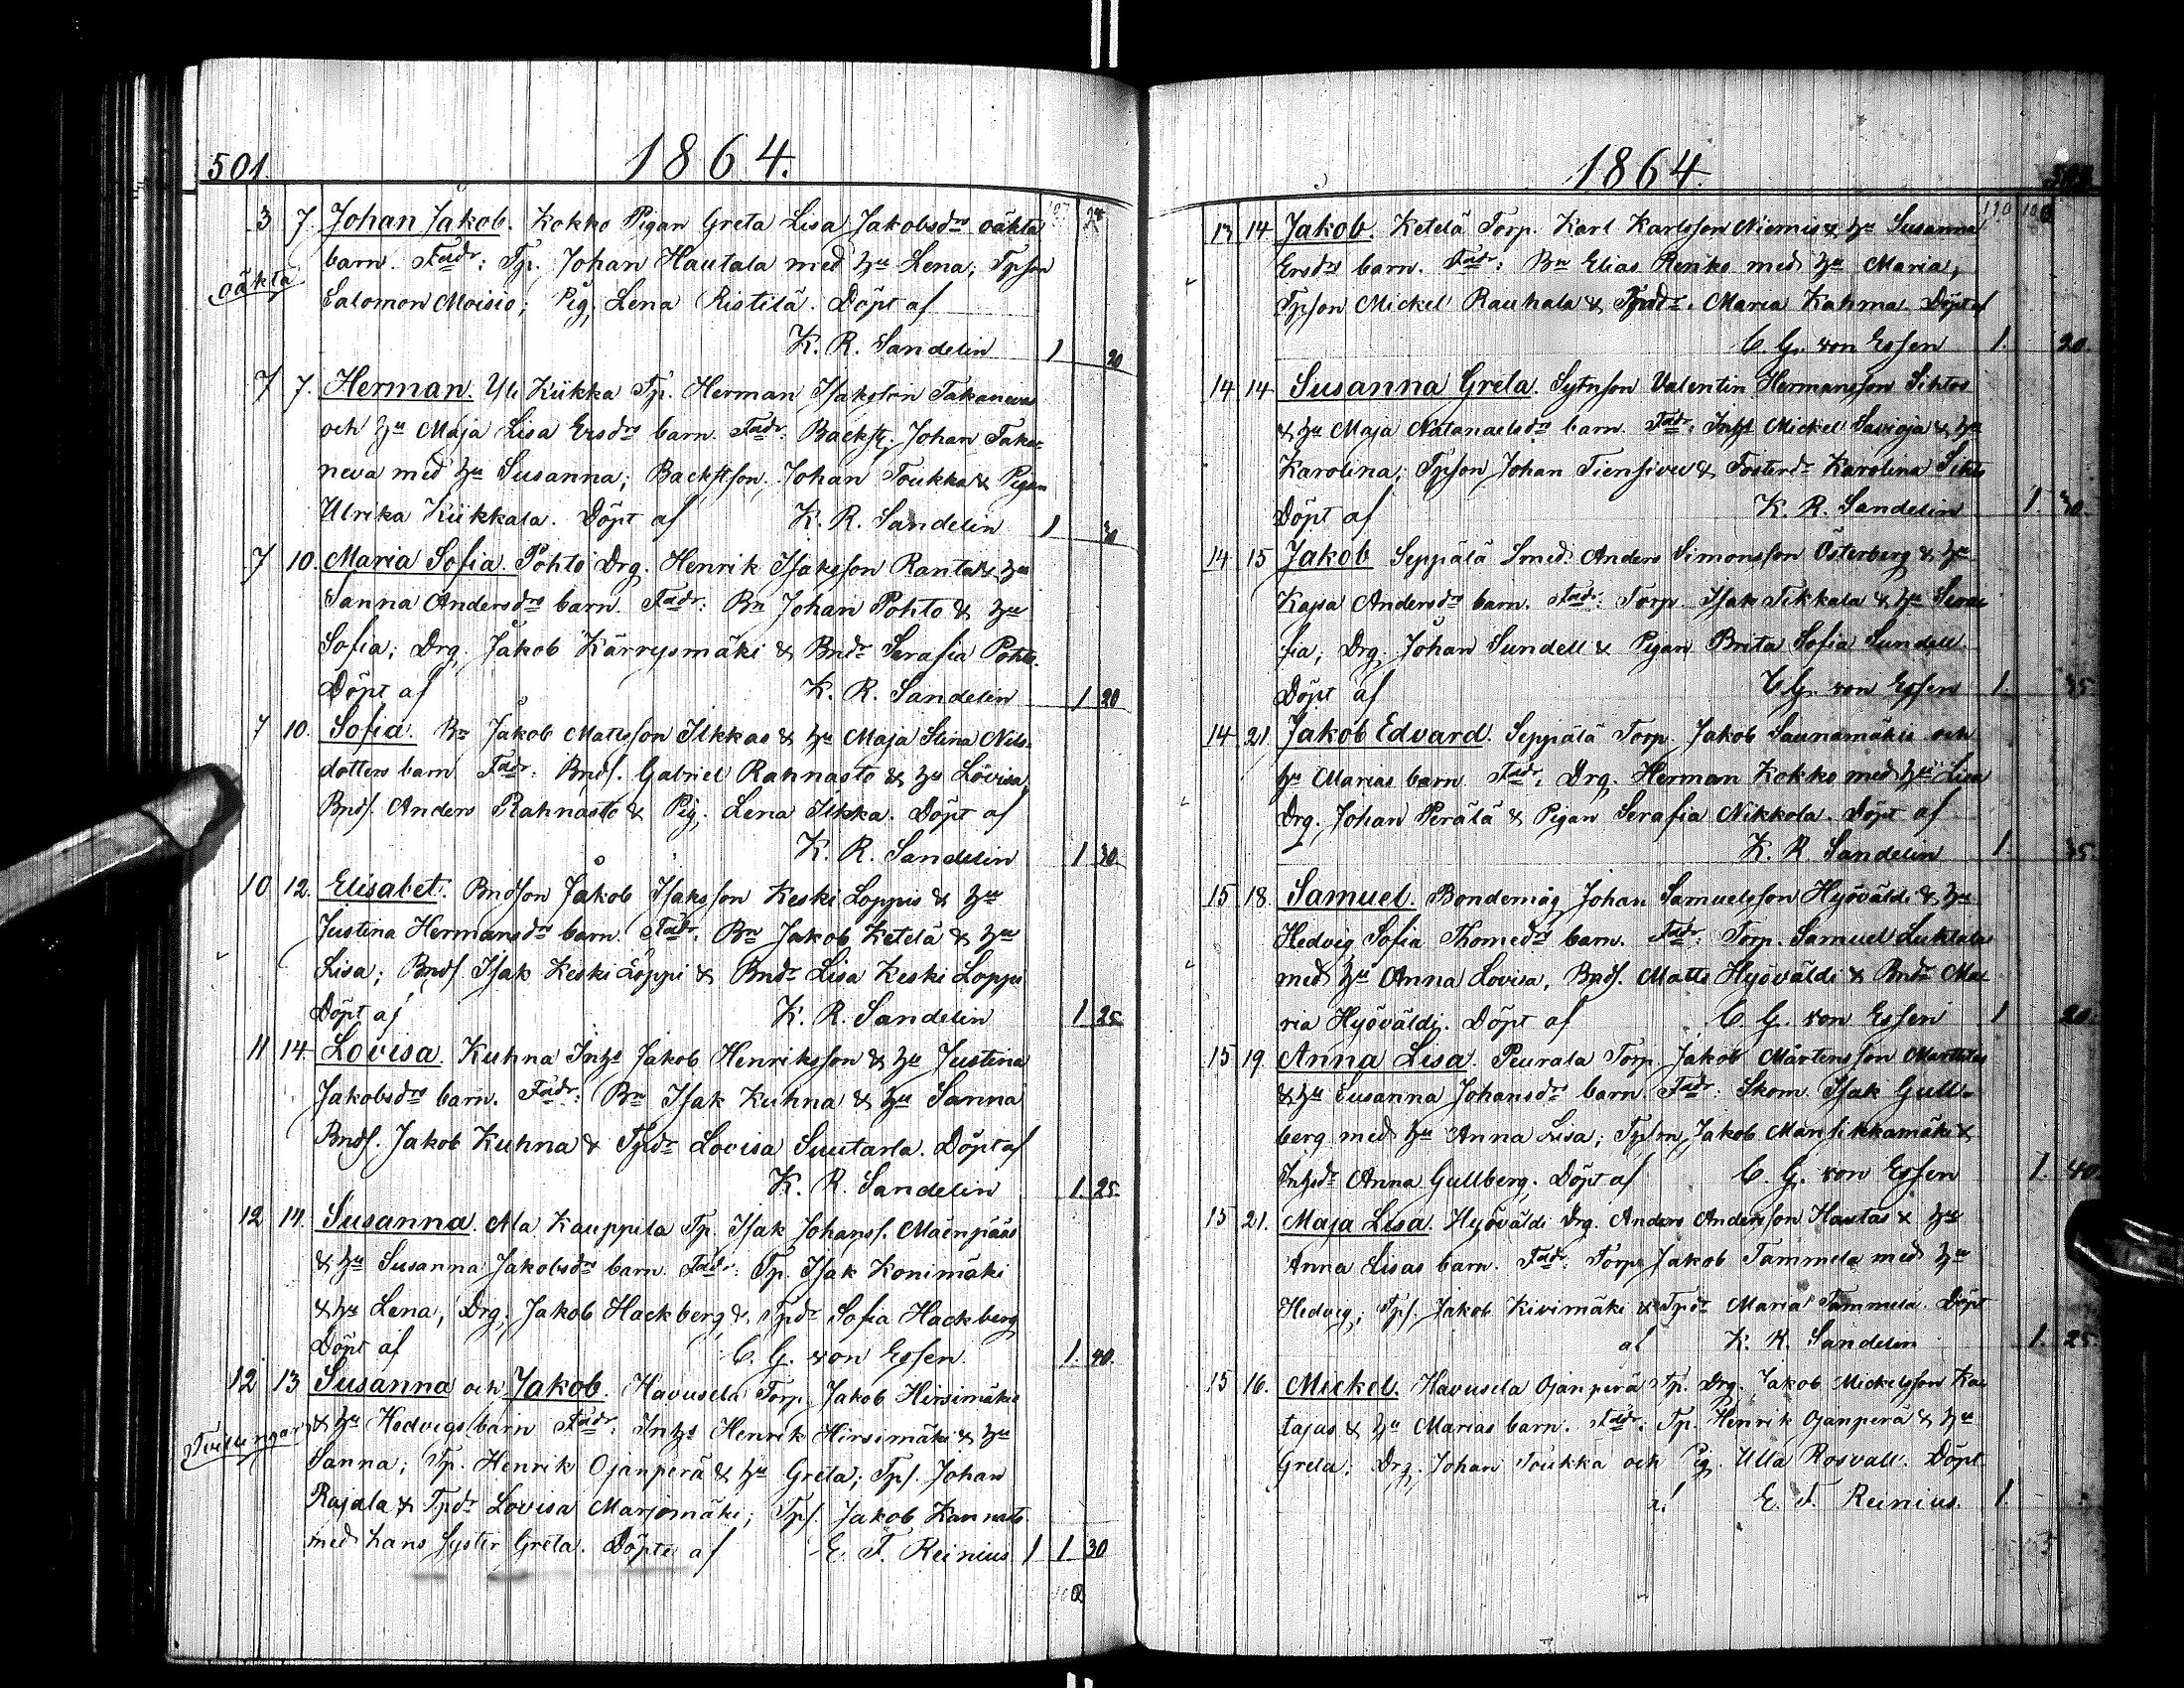 501. 1864.
3 7. Johan Jakob. Kokko Pigan Greta Lisa Jakobsdrs oäkta
barn. Fadr: Tp. Johan Hautala med hu Lena; Tpson
oäkta
Salomon Moisio; Pig. Lena Ristilä. Döpt af
K. R. Sandelin 1 20
7 7. Herman. Yli Kükka Tp. Herman Isaksson Takanevas
och hu Maja Lisa Ersdrs barn. Fadr: Backstg. Johan Taka-
neva med hu Susanna; Backstson Johan Toukka & Pigan
Ulrika Kiikkala. Döpt af K. R. Sandelin 1
7 10. Maria Sofia. Pohto Drg. Henrik Isaksson Ranta & hu
Sanna Andersdrs barn. Fadr: Bn Johan Pohto & hu
Sofia; Drg. Jakob Kärrysmäki & Bndr Serafia Pohto.
Döpt af K. R. Sandelin 1 20
7 10. Sofia. Bn Jakob Mattsson Ilkkas & hu Maja Stina Nils-
dotters barn Fadr: Bnds. Gabriel Rahnasto & hu Lovisa,
Bnds. Anders Rahnasto & Pig. Lena Ilkka. Döpt af
K. R. Sandelin 1
10 12. Elisabet. Bndson Jakob Isaksson Keski Loppis & hu
Justina Hermansdrs barn. Fadr. Bn Jakob Ketelä & hu
Lisa; Bnds. Isak Keski Loppi & Bndr Lisa Keski Loppi
Döpt af K. R. Sandelin 1 25
11 14. Lovisa. Kuhna Inhs Jakob Henriksson & hu Justina
Jakobsdrs barn. Fadr: Bn Isak Kuhna & hu Sanna
Bnds. Jakob Kuhna & Tpdr Lovisa Suutarla. Döpt af
K. R. Sandelin 1. 25.
12 14. Susanna. Ala Kauppila Tp. Isak Johanss. Mäenpääs
& hu Susanna Jakobsdrs barn. Fadr: Tp. Isak Konimäki
& hu Lena; Drg. Jakob Hackberg & Tpdr Sofia Hackberg
Döpt af C. G. von Essen. 1. 40.
12 13 Susanna och Jakob. Havusela Torp. Jakob Hirsimäkis
& hu Hedvigs barn Fadr: Inhs Henrik Hirsimäki & hu
Tvillingar
Sanna; Tp. Henrik Ojanperä & hu Greta; Tps. Johan
Rajala & Tpdr Lovisa Marjomäki; Tps. Jakob Kannasto
med hans syster Greta. Döpte af E. F. Reinius 1 1 30
1864.
13 14 Jakob. Ketelä Torp. Karl Karlsson Niemis & hu Susanna
Ersdrs barn. Fadr: Bn Elias Renko med hu Maria;
Tpson Mickel Rauhala & Tpdr. Maria Kahma. Döpt af
C. G. von Essen 1. 20.
14 14 Susanna Greta. Sytnson Valentin Hermansson Sihtos
& hu Maja Natanaelsdrs barn. Fadr: Inhs Mickel Savioja & hu
Karolina; Tpson Johan Tiensivu & Fosterdr Karolina Sihto
Döpt af K. R. Sandelin 1.
14 15 Jakob Seppälä Smed. Anders Simonsson Österberg & hu
Kajsa Andersdrs barn. Fadr: Torp. Isak Tikkala & hu Sera-
fia; Drg. Johan Sundell & Pigan Brita Sofia Sundell.
Döpt af C. G. von Essen 1.
14 21 Jakob Edvard. Seppälä Torp. Jakob Saunamäkis och
hu Marias barn. Fadr: Drg. Herman Kokko med hu Lisa
Drg. Johan Perälä & Pigan Serafia Nikkola. Döpt af
K. R. Sandelin 1.
15 18. Samuel. Bondemåg Johan Samuelsson Hyöväldi & hu
Hedvig Sofia Thomedrs barn. Fadr: Torp. Samuel Luktala
med hu Anna Lovisa, Bnds. Matts Hyöväldi & Bndr Ma-
ria Hyöväldi. Döpt af C. G. von Essen 1 20.
15 19. Anna Lisa. Peurala Torp. Jakob Mårtensson Marttilas
& hu Susanna Johansdrs barn. Fadr: Skom. Isak Gull-
berg med hu Anna Lisa; Tpson Jakob Mansikkamäki &
Inhsdr Anna Gullberg. Döpt af C. G. von Essen 1. 40.
15 21. Maja Lisa. Hyöväldi Drg. Anders Andersson Hautas & hu
Anna Lisas barn. Fadr: Torp. Jakob Tammela med hu
Hedvig; Tps. Jakob Kivimäki & Tpdr Maria Tammela. Döpt
af K. R. Sandelin 1. 25.
15 16. Mickel. Havusela Ojanperä Tp. Drg. Jakob Mickelsson Ka-
tajas & hu Marias barn. Fadr: Tp. Henrik Ojanperä & hu
Greta. Drg. Johan Toukka och Pig. Ulla Rosvall. Döpt
af E. F. Reinius. 1.